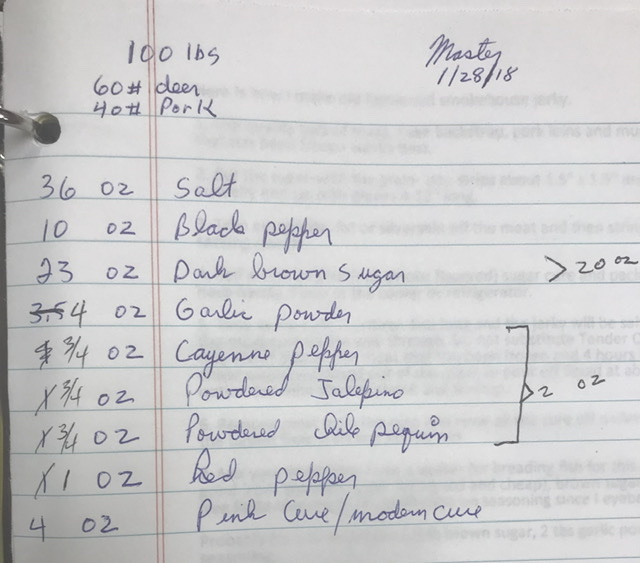 100 lbs
Master
1/28/18
60# deer
40# Pork
36 oz Salt
10 oz Black pepper
23 oz Dark brown Sugar > 20 oz
3.5 4 oz Garlic powder
3/4 oz Cayenne Pepper
3/4 oz Powdered Jalepino
3/4 oz Powdered Chile pequin
> 2 oz
1 oz Red pepper
4 oz Pink Cure/modern cure